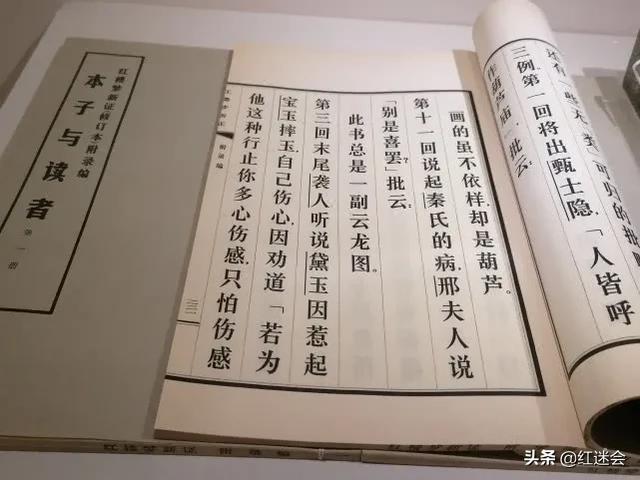 红楼梦新证修订本附录编
本子与读者
第一册
三例。第一回将出甄士隐，「人皆呼
作葫芦庙」，批云：
画的虽不依样，却是葫芦。
第十一回说起秦氏的病，邢夫人说
「别是喜罢？」批云：
此书总是一副云龙图。
第三回末尾袭人听说黛玉因惹起
宝玉摔玉，自己伤心，因劝道：「若为
他这种行止，你多心伤感，只怕伤感
附录编
头条 @红迷会